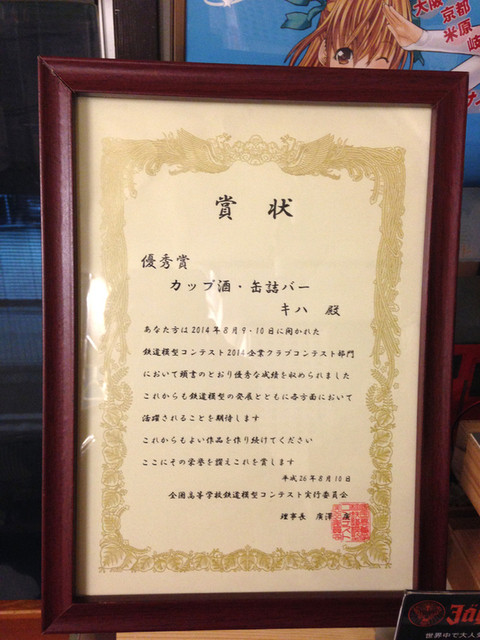 大阪 京都
米原
岐
賞 状
優秀賞
カップ酒・缶詰バー
キハ 殿
あなた方は2014年8月9・10日に開かれた
鉄道模型コンテスト2014企業クラブコンテスト部門
において頭書のとおり優秀な成績を収められました
これからも鉄道模型の発展とともに各方面において
活躍されることを期待します
これからもよい作品を作り続けてください
ここにその栄誉を讃えこれを賞します
平成26年8月10日
全国高等学校鉄道模型コンテスト実行委員会
理事長 廣澤
世界中で大人